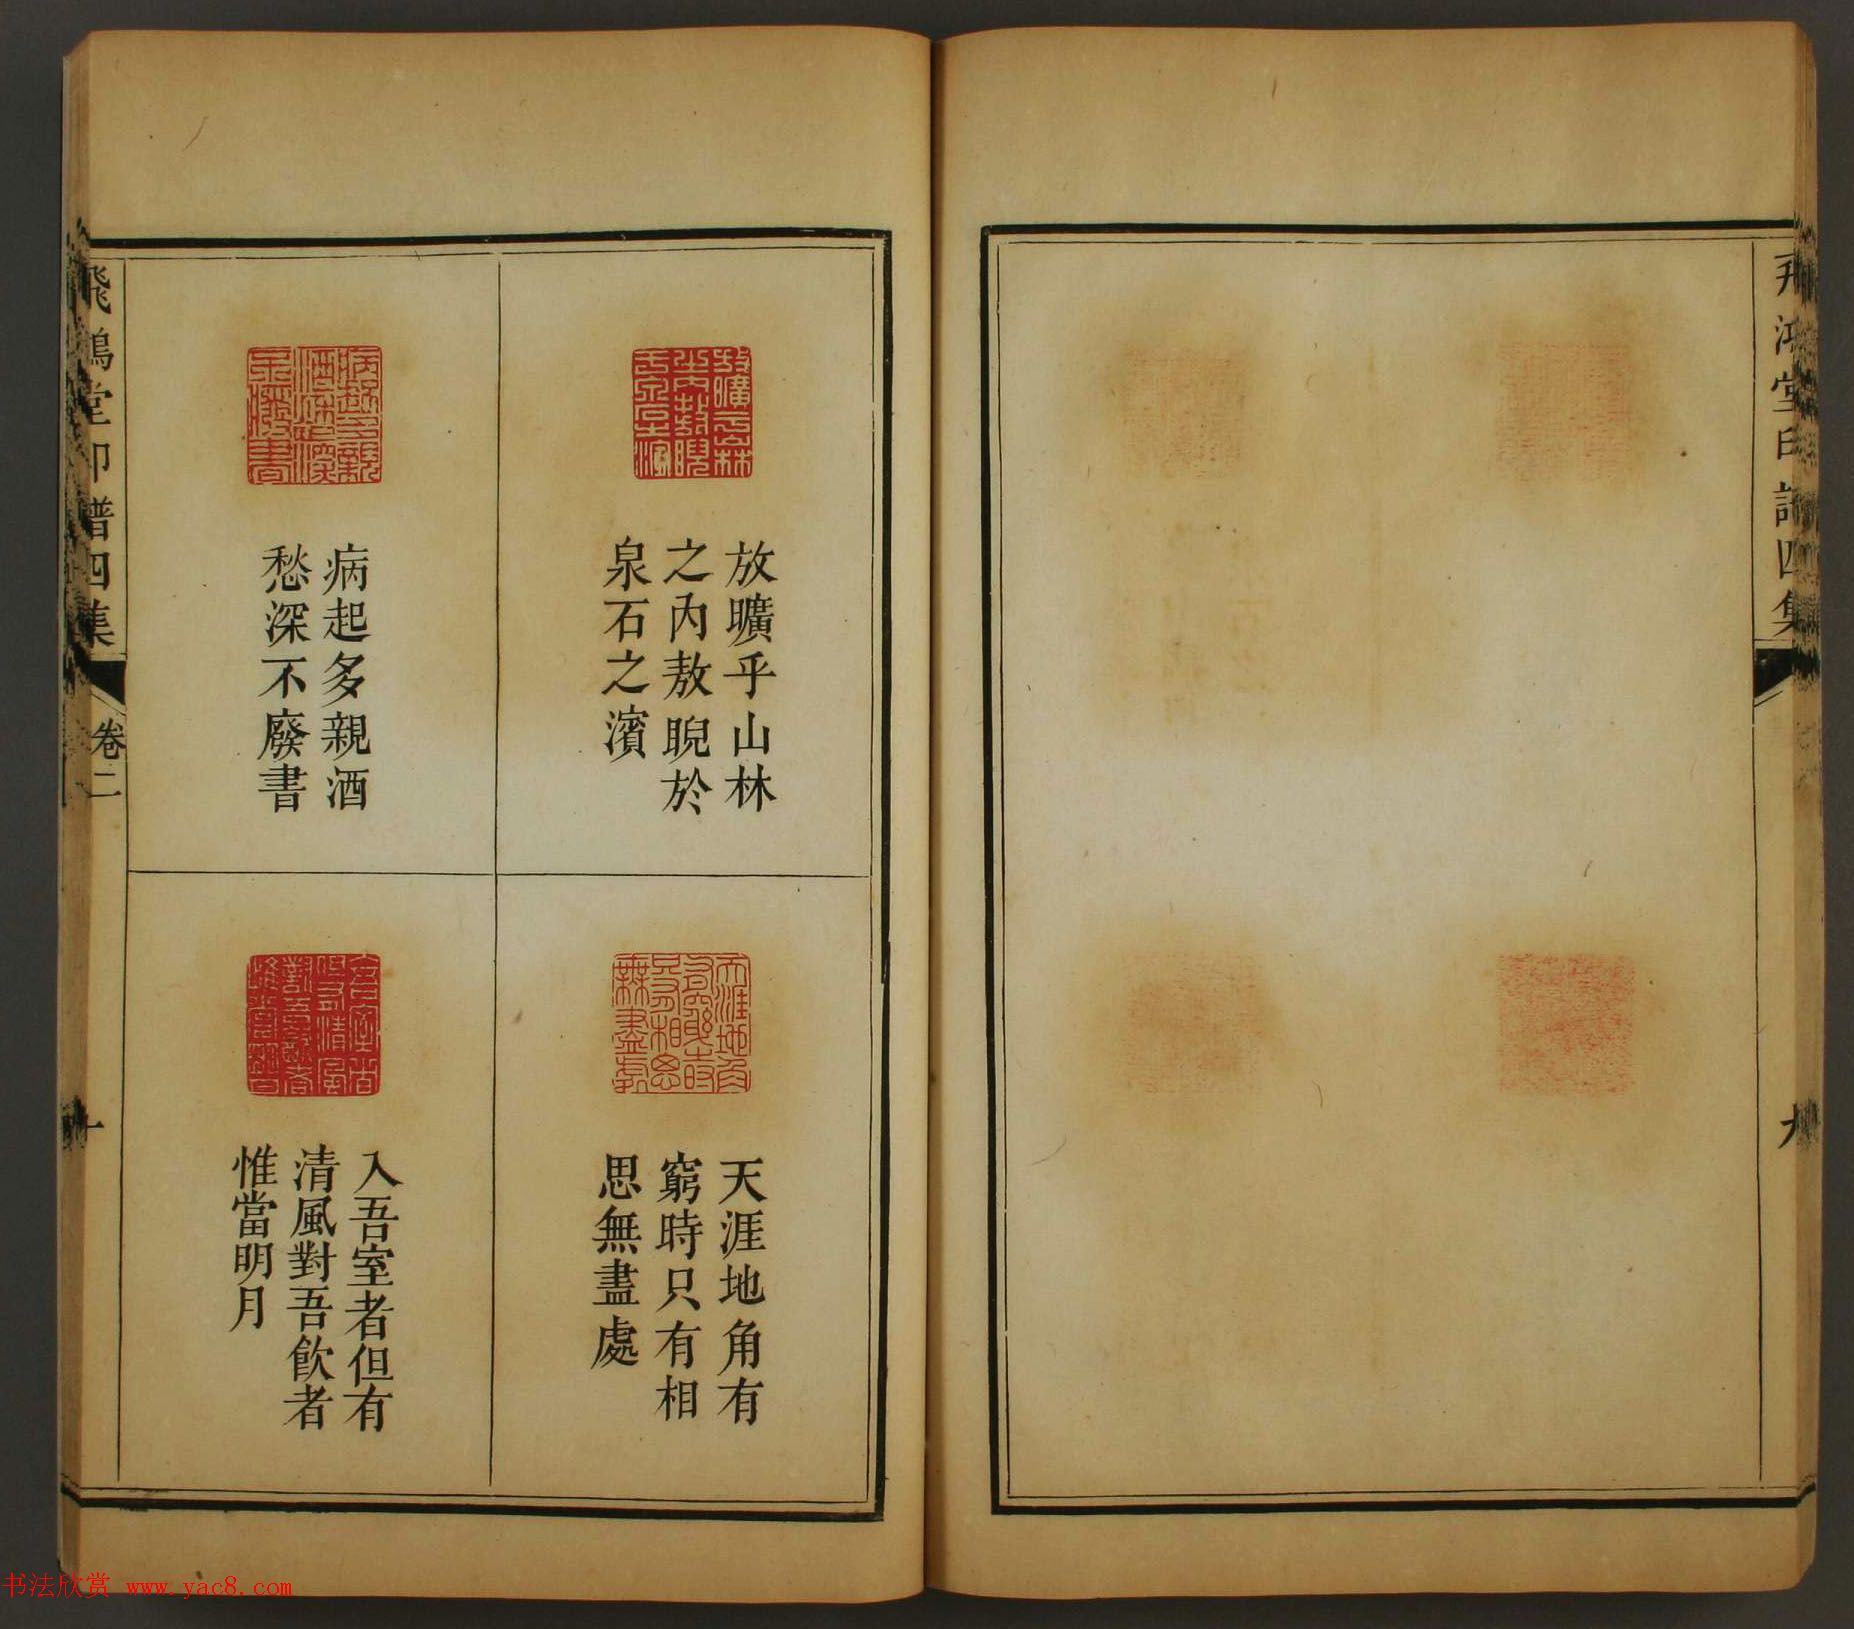 飛鴻堂印譜四集
九
放曠乎山林
之內敖睨於
泉石之濱
天涯地角有
窮時只有相
思無盡處
病起多親酒
愁深不廢書
入吾室者但有
清風對吾飲者
惟當明月
飛鴻堂印譜四集
卷二
十
书法欣赏 www.yac8.com